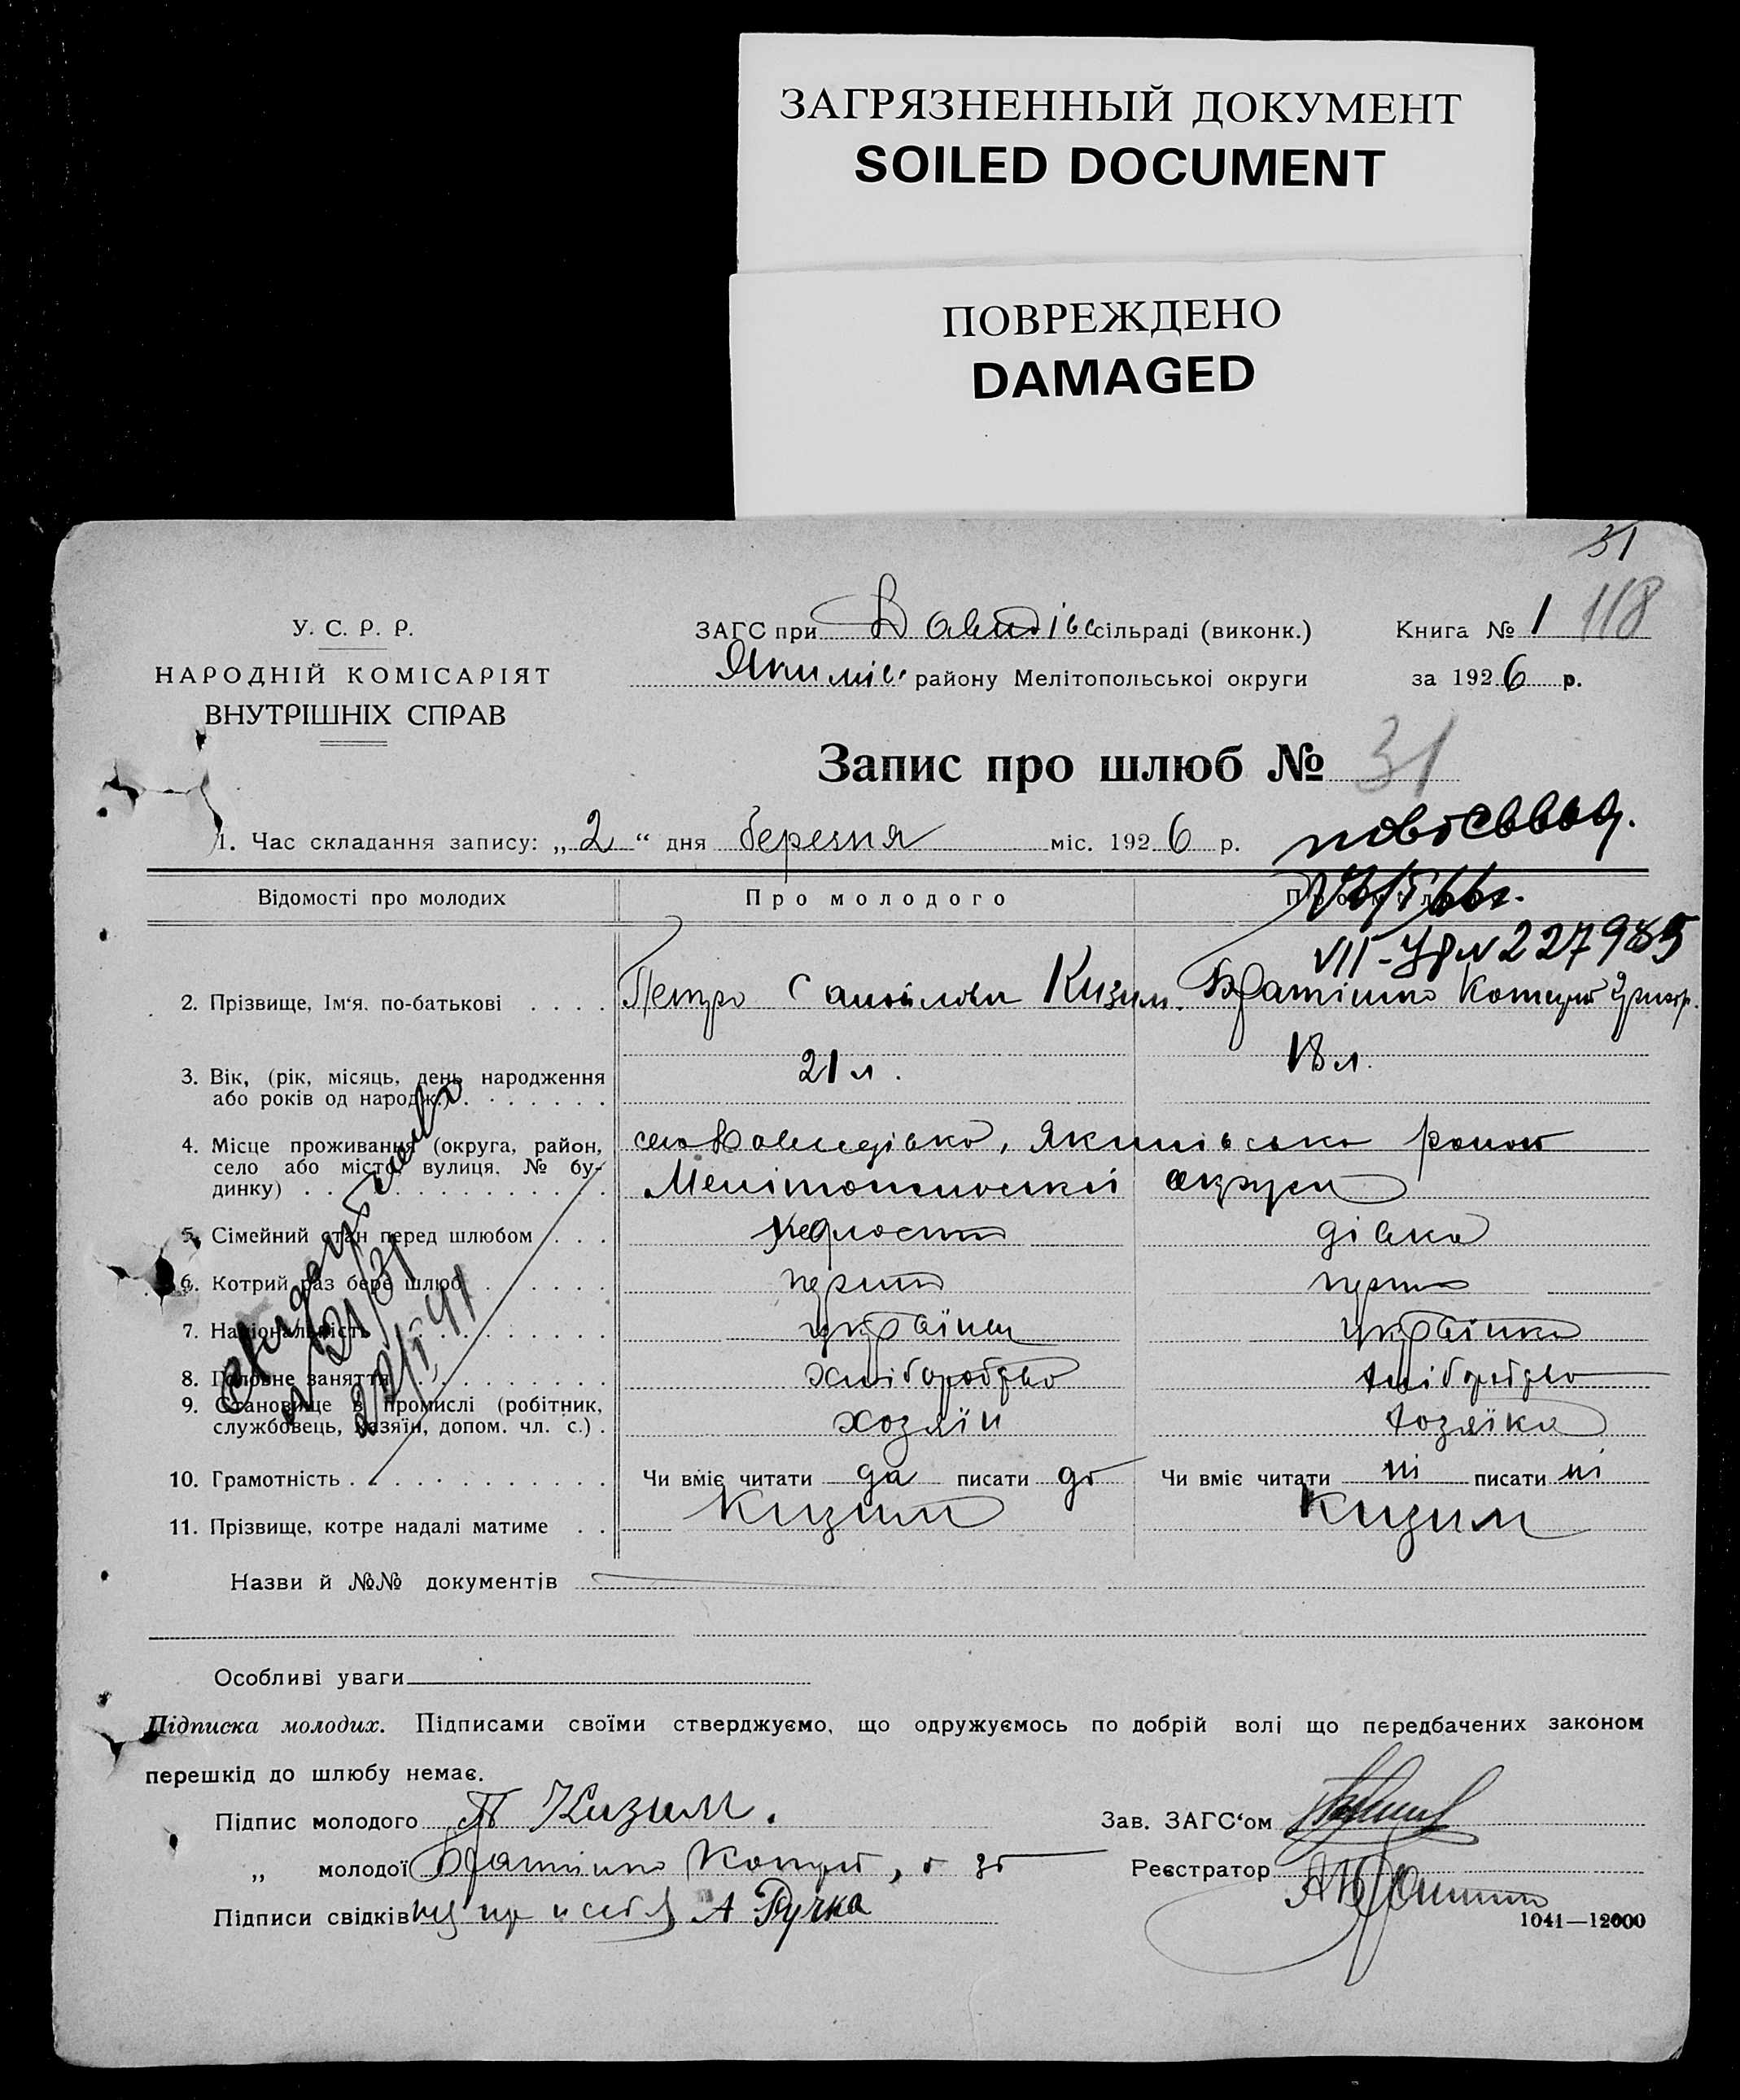 ЗАГРЯЗНЕННЫЙ ДОКУМЕНТ
SOILED DOCUMENT
ПОВРЕЖДЕНО
DAMAGED
31
118
У. С. Р. Р.
НАРОДНІЙ КОМІСАРІЯТ
ВНУТРІШНІХ СПРАВ
ЗАГС при Давидівс сільраді (виконк.)
Книга № 1
Якимів. району Мелітопольської округи
за 1926 р.
Запис про шлюб № 31
1. Час складання запису: „2“ дня березня міс. 1926 р.
Відомості про молодих
Про молодого
VII-УР № 227985
2. Прізвище, Ім‘я. по-батькові . . . . Петро Самойлович Кизим. Братішко Григор.
3. Вік, (рік, місяць, день народження або років од народж.) . . . . . . 21 л. 18 л.
4. Місце проживання (округа, район, село або місто, вулиця, № будинку) . . . село Давидівка, Якимівсько район
Мелітопольської округи
5. Сімейний стан перед шлюбом . . . дівка
6. Котрий раз бере шлюб . . . . . . перший перше
7. Національність . . . . . . . українец українка
8. Головне заняття . . . . . . . хліборобство хліборобство
9. Становище в промислі (робітник, службовець, хазяїн, допом. чл. с.) . хозяїн хозяїка
10. Грамотність . . . . . . . . . Чи вміє читати да писати да Чи вміє читати ні писати ні
11. Прізвище, котре надалі матиме . . Кизим Кизим
Назви й №№ документів
Особливі уваги
Підписка молодих. Підписами своїми стверджуємо, що одружуємось по добрій волі що передбачених законом
перешкід до шлюбу немає.
Підпис молодого П Кизим.
Зав. ЗАГС‘ом
„ молодої Братішко
Реєстратор
Підписи свідків А Ручка
1041—12000